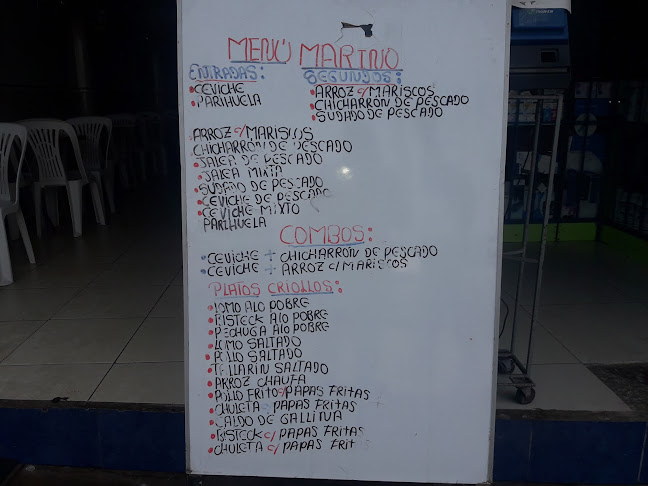 MENÚ MARINO
ENTRADAS:
CEVICHE
PARIHUELA
SEGUNDOS:
ARROZ c/MARISCOS
CHICHARRÓN DE PESCADO
SUDADO DE PESCADO
ARROZ c/MARISCOS
CHICHARRÓN DE PESCADO
JALEA DE PESCADO
JALEA MIXTA
SUDADO DE PESCADO
CEVICHE DE PESCADO
CEVICHE MIXTO
PARIHUELA
COMBOS:
CEVICHE + CHICHARRÓN DE PESCADO
CEVICHE + ARROZ c/MARISCOS
PLATOS CRIOLLOS:
LOMO ALO POBRE
BISTECK ALO POBRE
PECHUGA ALO POBRE
LOMO SALTADO
POLLO SALTADO
TALLARIN SALTADO
ARROZ CHAUFA
POLLO FRITO c/PAPAS FRITAS
CHULETA PAPAS FRITAS
CALDO DE GALLINA
BISTECK c/PAPAS FRITAS
CHULETA c/PAPAS FRITAS